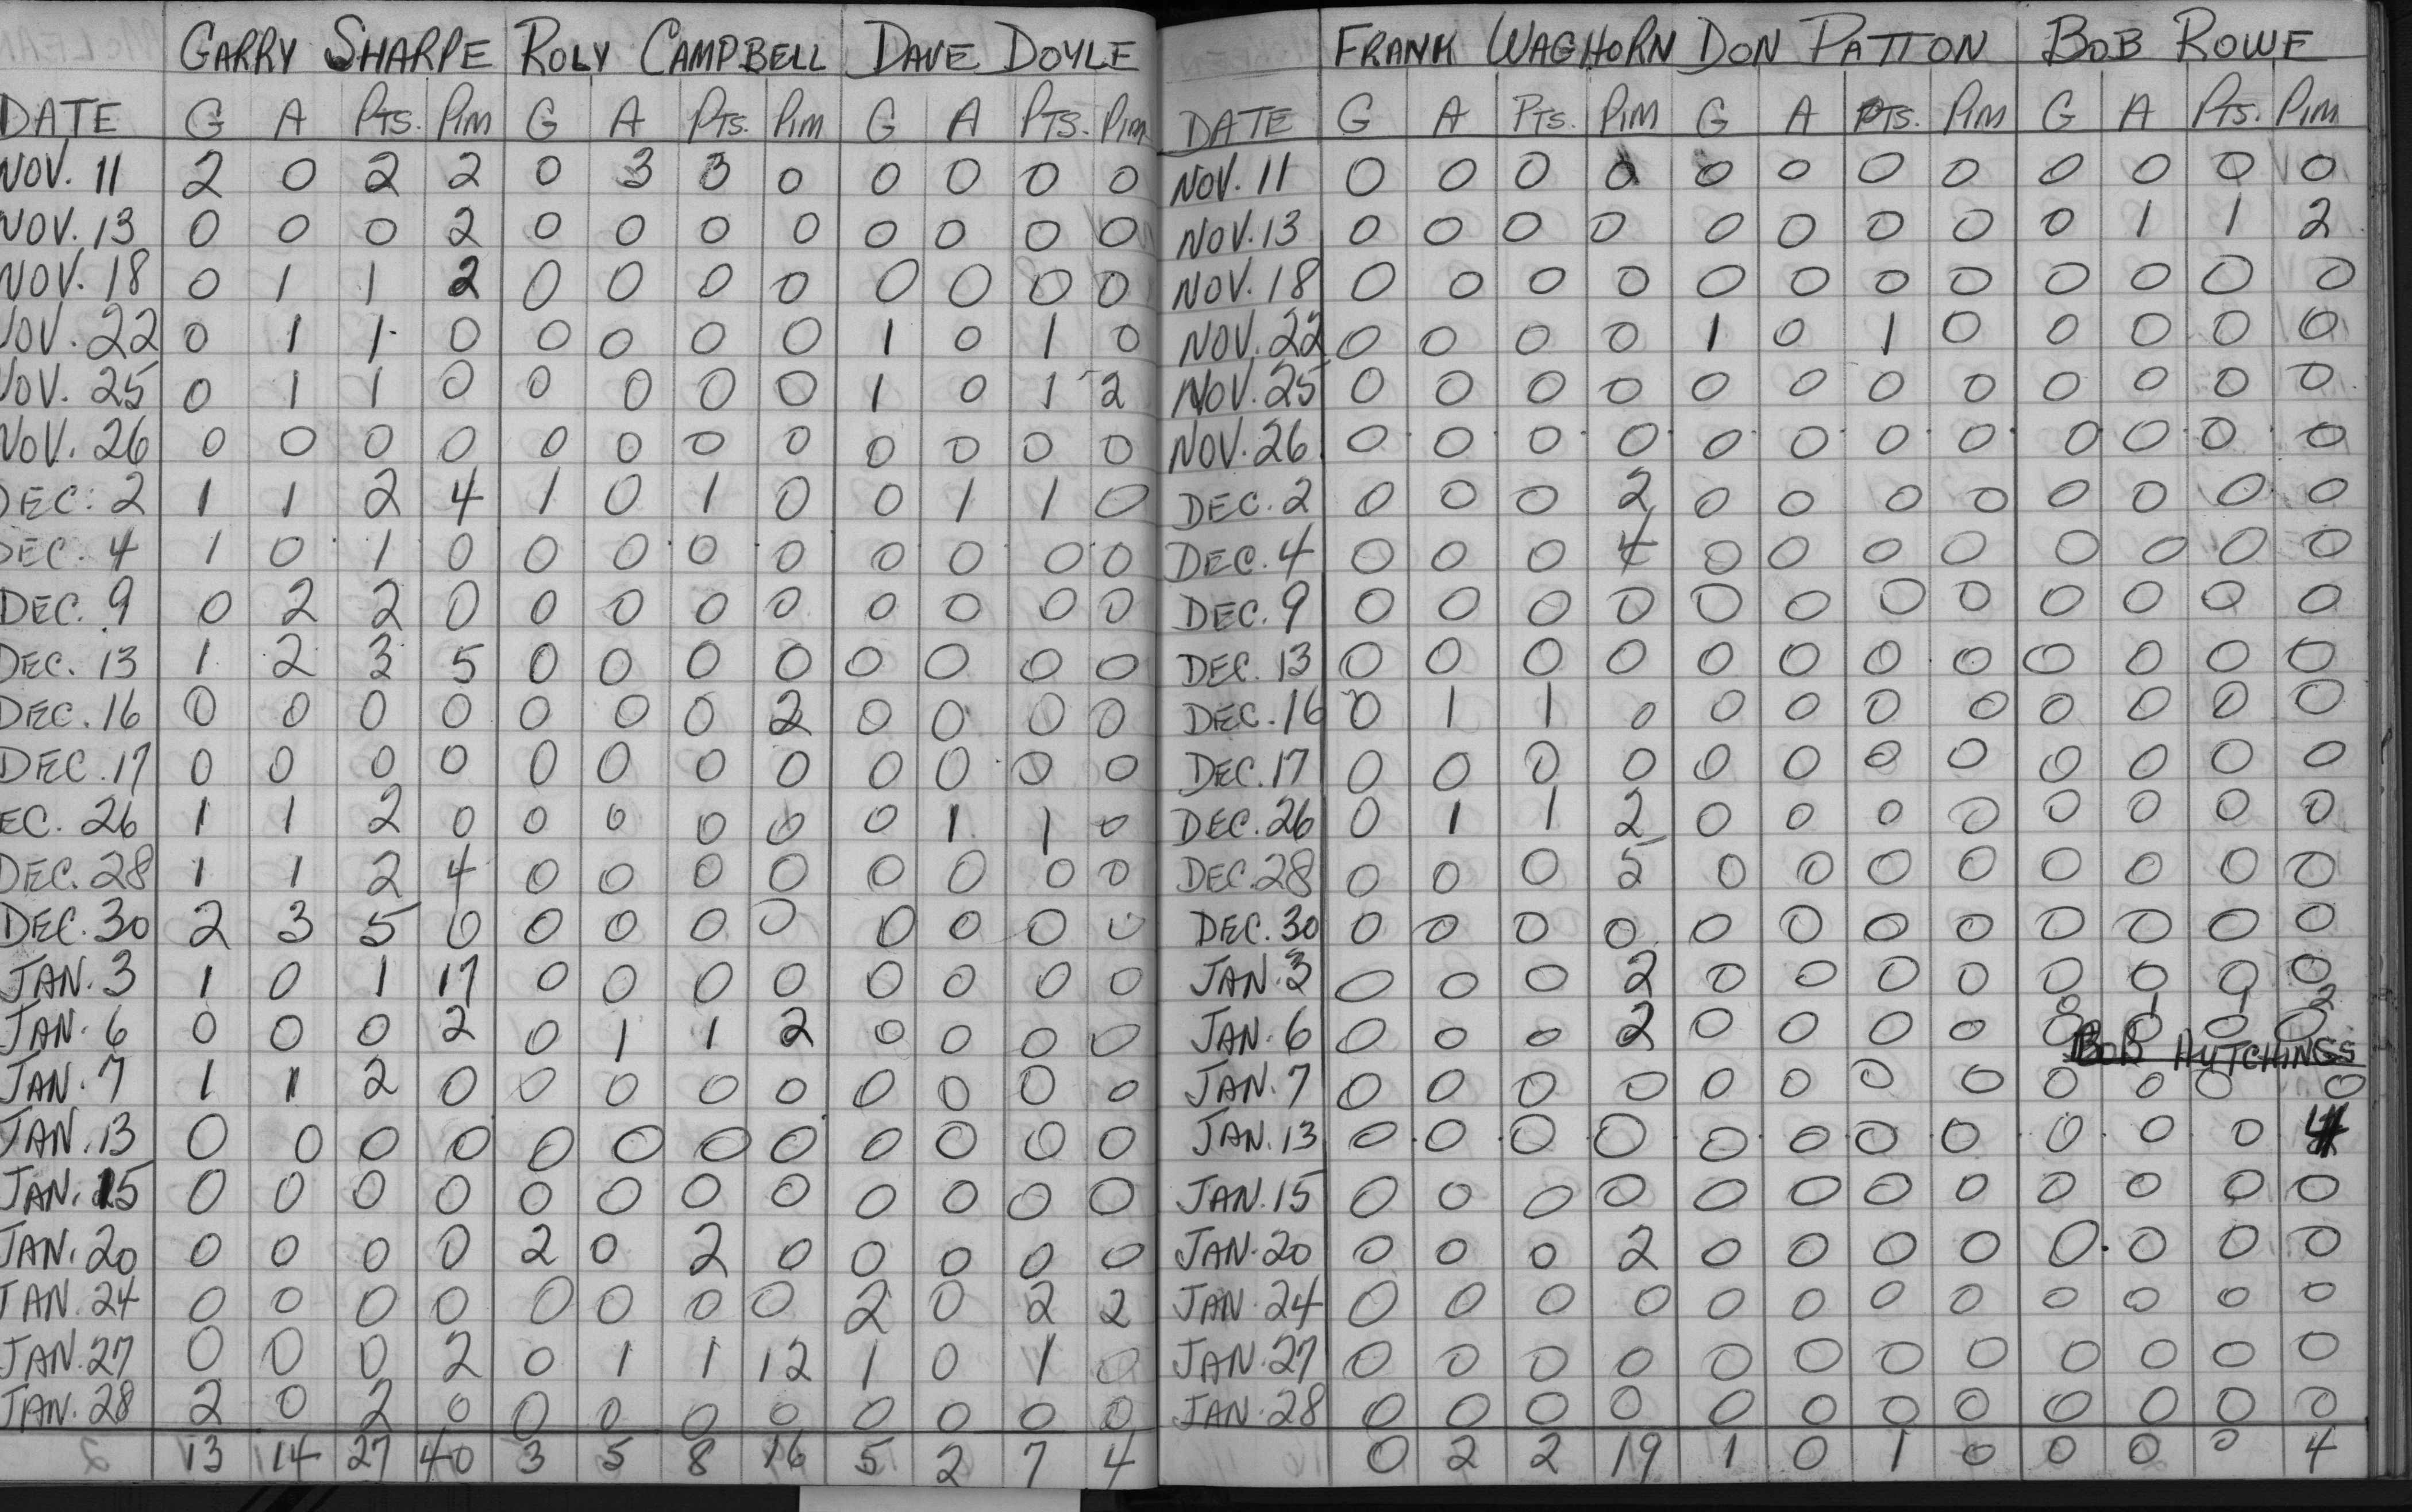 GARRY SHARPE ROLY CAMPBELL DAVE DOYLE
DATE G A PTS. PIM G A PTS. PIM G A PTS. PIM
NOV. 11 2 0 2 2 0 3 3 0 0 0 0 0
NOV. 13 0 0 0 2 0 0 0 0 0 0 0 0
NOV. 18 0 1 1 2 0 0 0 0 0 0 0 0
NOV. 22 0 1 1 0 0 0 0 0 1 0 1 0
NOV. 25 0 1 1 0 0 0 0 0 1 0 1 2
NOV. 26 0 0 0 0 0 0 0 0 0 0 0 0
DEC. 2 1 1 2 4 1 0 1 0 0 1 1 0
DEC. 4 1 0 1 0 0 0 0 0 0 0 0 0
DEC. 9 0 2 2 0 0 0 0 0 0 0 0 0
DEC. 13 1 2 3 5 0 0 0 0 0 0 0 0
DEC. 16 0 0 0 0 0 0 0 2 0 0 0 0
DEC. 17 0 0 0 0 0 0 0 0 0 0 0 0
EC. 26 1 1 2 0 0 0 0 0 0 1 1 0
DEC. 28 1 1 2 4 0 0 0 0 0 0 0 0
DEC. 30 2 3 5 0 0 0 0 0 0 0 0 0
JAN. 3 1 0 1 17 0 0 0 0 0 0 0 0
JAN. 6 0 0 0 2 0 1 1 2 0 0 0 0
JAN. 7 1 1 2 0 0 0 0 0 0 0 0 0
JAN. 13 0 0 0 0 0 0 0 0 0 0 0 0
JAN. 15 0 0 0 0 0 0 0 0 0 0 0 0
JAN. 20 0 0 0 0 2 0 2 0 0 0 0 0
JAN. 24 0 0 0 0 0 0 0 0 2 0 2 2
JAN. 27 0 0 0 2 0 1 1 12 1 0 1 0
JAN. 28 2 0 2 0 0 0 0 0 0 0 0 0
13 14 27 40 3 5 8 16 5 2 7 4
FRANK WAGHORN DON PATTON BOB ROWE
DATE G A PTS. PIM G A PTS. PIM G A PTS. PIM
NOV. 11 0 0 0 0 0 0 0 0 0 0 0 0
NOV. 13 0 0 0 0 0 0 0 0 0 1 1 2
NOV. 18 0 0 0 0 0 0 0 0 0 0 0 0
NOV. 22 0 0 0 0 1 0 1 0 0 0 0 0
NOV. 25 0 0 0 0 0 0 0 0 0 0 0 0
NOV. 26 0 0 0 0 0 0 0 0 0 0 0 0
DEC. 2 0 0 0 2 0 0 0 0 0 0 0 0
DEC. 4 0 0 0 4 0 0 0 0 0 0 0 0
DEC. 9 0 0 0 0 0 0 0 0 0 0 0 0
DEC. 13 0 0 0 0 0 0 0 0 0 0 0 0
DEC. 16 0 1 1 0 0 0 0 0 0 0 0 0
DEC. 17 0 0 0 0 0 0 0 0 0 0 0 0
DEC. 26 0 1 1 2 0 0 0 0 0 0 0 0
DEC. 28 0 0 0 5 0 0 0 0 0 0 0 0
DEC. 30 0 0 0 0 0 0 0 0 0 0 0 0
JAN. 3 0 0 0 2 0 0 0 0 0 0 0 0
0 1 1 2
JAN. 6 0 0 0 2 0 0 0 0 0 0 0 0
BOB HUTCHINGS
JAN. 7 0 0 0 0 0 0 0 0 0 0 0 0
JAN. 13 0 0 0 0 0 0 0 0 0 0 0 4
JAN. 15 0 0 0 0 0 0 0 0 0 0 0 0
JAN. 20 0 0 0 2 0 0 0 0 0 0 0 0
JAN. 24 0 0 0 0 0 0 0 0 0 0 0 0
JAN. 27 0 0 0 0 0 0 0 0 0 0 0 0
JAN. 28 0 0 0 0 0 0 0 0 0 0 0 0
0 2 2 19 1 0 1 0 0 0 0 4